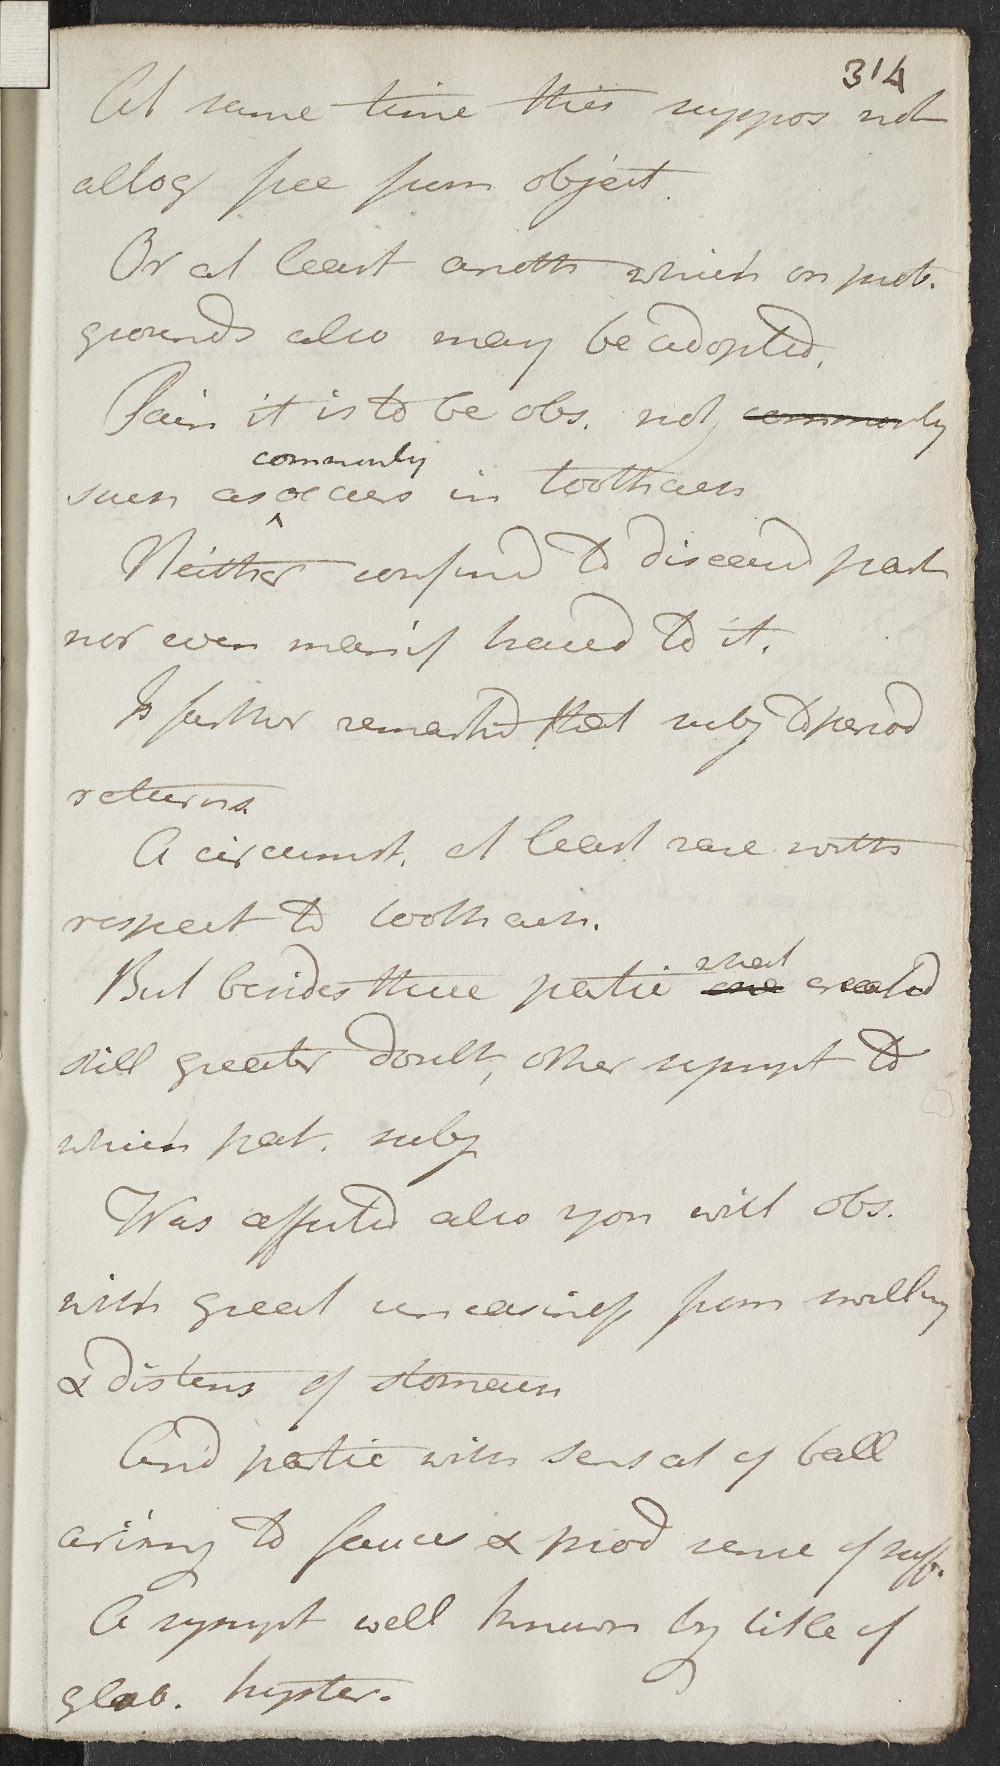 314
At same time this suppos not
altog free from object.
Or at least anoth which on prob.
grounds also may be adopted.
Pain it is to be obs. not commonly
commonly
such as occurs in toothach
Neither confined to diseased part
nor even manif traced to it.
Is further remarked that subj to period
returns
A circumst. at least rare with
respect to toothach.
But besides these partic what are created
still greater doubt, other sympt to
which pat. subj
Was affected also you will obs.
with great uneasiness from swelling
& distens of stomach
And partic with sensat of ball
arising to fauces & prod sense of suff.
A sympt well known by title of
glob. hyster.